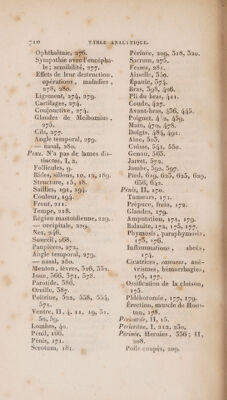 710 TABLE ANALYTIQUE.
Ophthalmie, 276.
Sympathie avec l'encépha-
le; sensibilité, 277.
Effets de leur destruction,
opérations, maladies,
278, 280.
Ligament, 274, 279.
Cartilages, 274.
Conjonctive, 274.
Glandes de Meibomius,
276.
Cils, 277.
Angle temporal, 279.
— nasal, 280.
Peau. N'a pas de lames dis-
tinctes, I, 2.
Follicules, 9.
Rides, sillons, 10, 12, 189.
Structure, 15, 18.
Saillies, 191, 194.
Couleur, 194.
Front, 211.
Tempe, 218.
Région mastoïdienne, 229.
— occipitale, 229.
Nez, 246.
Sourcil, 268.
Paupières, 272.
Angle temporal, 279.
— nasal, 280.
Menton, lèvres, 326, 332.
Joue, 366, 371, 572.
Parotide, 386.
Oreille, 387.
Poitrine, 522, 558, 554,
571.
Ventre, II, 4, 11, 19, 31,
50, 59.
Lombes, 40.
Pénil, 166.
Pénis, 171.
Scrotum, 181.
Périnée, 209, 318, 320.
Sacrum, 275.
Fesses, 281.
Aisselle, 350.
Épaule, 374.
Bras, 398, 406.
Pli du bras, 411.
Coude, 427.
Avant-bras, 436, 445.
Poignet, 442, 459.
Main, 470, 478.
Doigts, 484, 491.
Aine, 505.
Cuisse, 541, 552.
Genou, 565.
Jarret, 572.
Jambe, 592, 597.
Pied, 619, 623, 625, 629,
636, 642.
Pénis, II, 170.
Tumeurs, 171.
Prépuce, frein, 172.
Glandes, 179.
Amputation, 171, 179.
Balanite, 172, 175, 177.
Phymosis, paraphymosis,
173, 176.
Inflammations, abcès,
174.
Cicatrices, cancers, ané-
vrismes, hémorrhagies,
175, 177.
Ossification de la cloison,
175.
Phlébotomie, 177, 179.
Érection, muscle de Hous-
ton, 178.
Péricarde, II, 15.
Péricrâne, I, 212, 230.
Périnée, Hernies, 336; II,
208.
Poils coupés, 209.